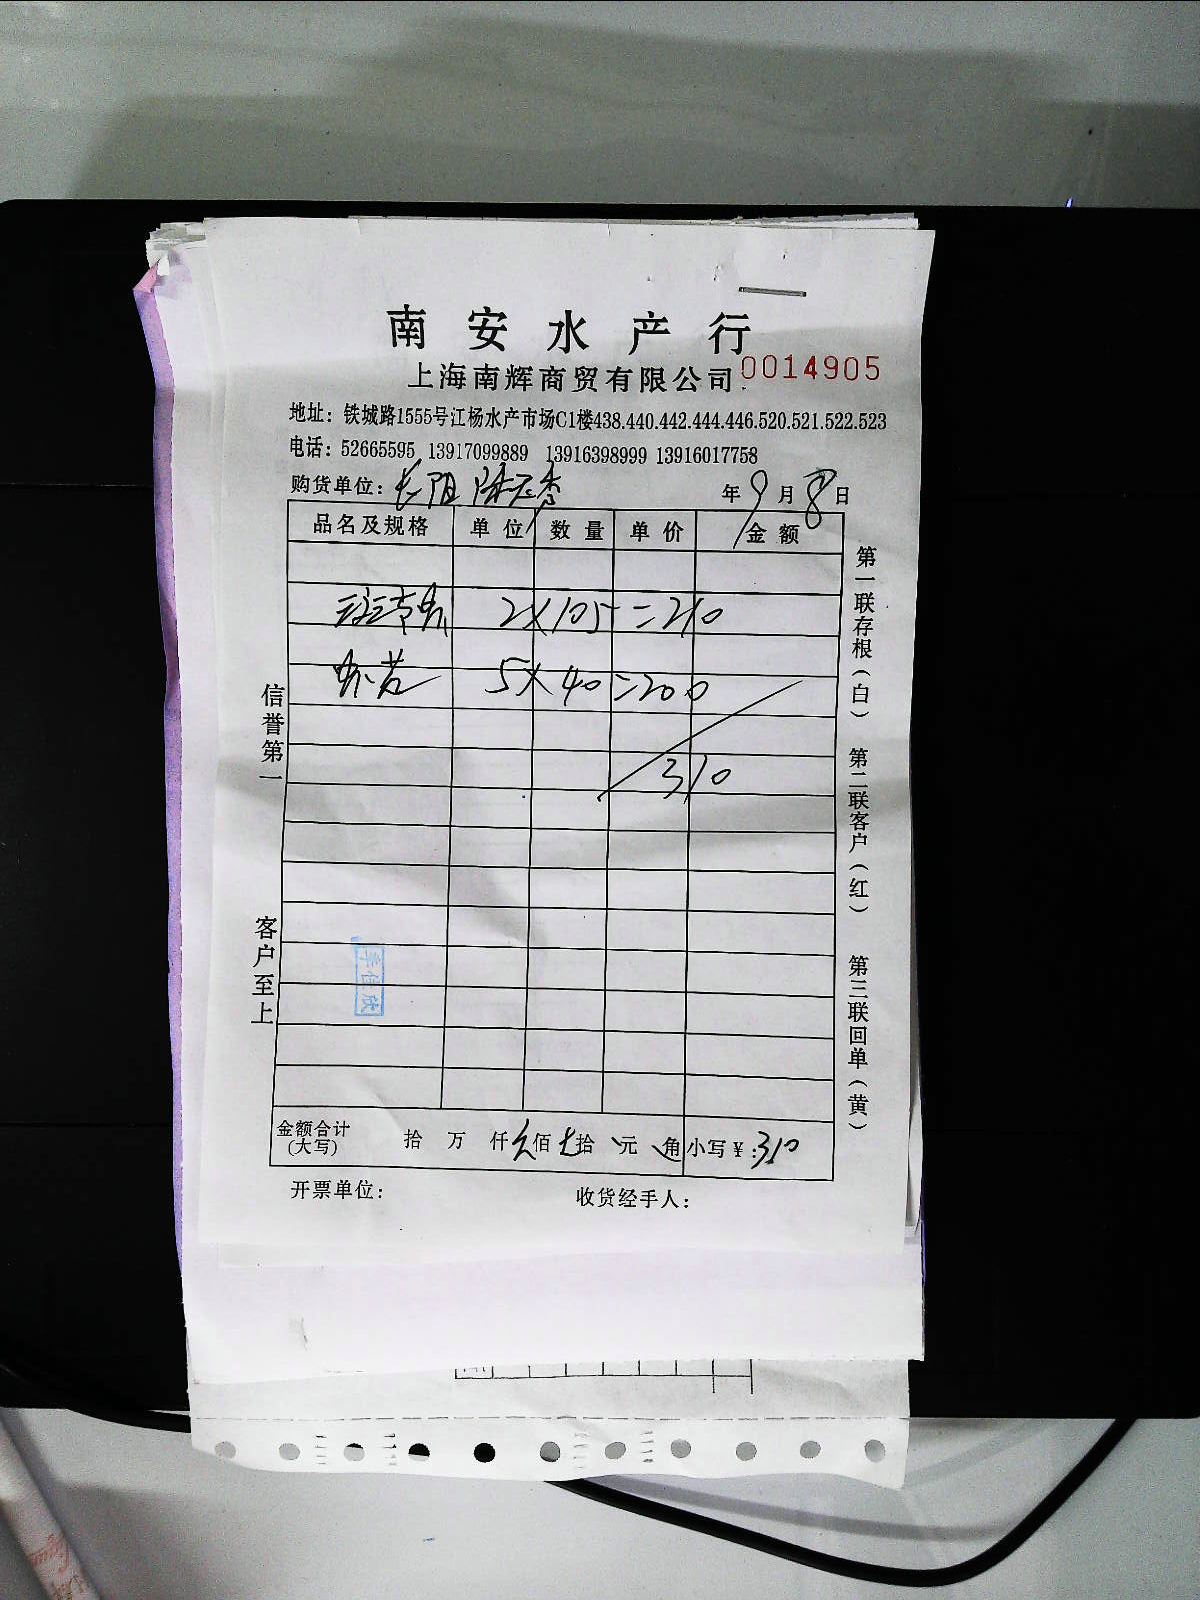 南安水产行
上海南辉商贸有限公司 0014905
地址：铁城路1555号江杨水产市场C1楼438.440.442.444.446.520.521.522.523
电话：52665595 13917099889 13916398999 13916017758
购货单位： 年9月8日
品名及规格 单位 数量 单价 金额
2×105=210
5×40=200
310
信誉第一
客户至上
第一联存根（白） 第二联客户（红） 第三联回单（黄）
金额合计（大写） 拾 万 仟 佰 拾 元 角 小写￥：310
开票单位： 收货经手人：